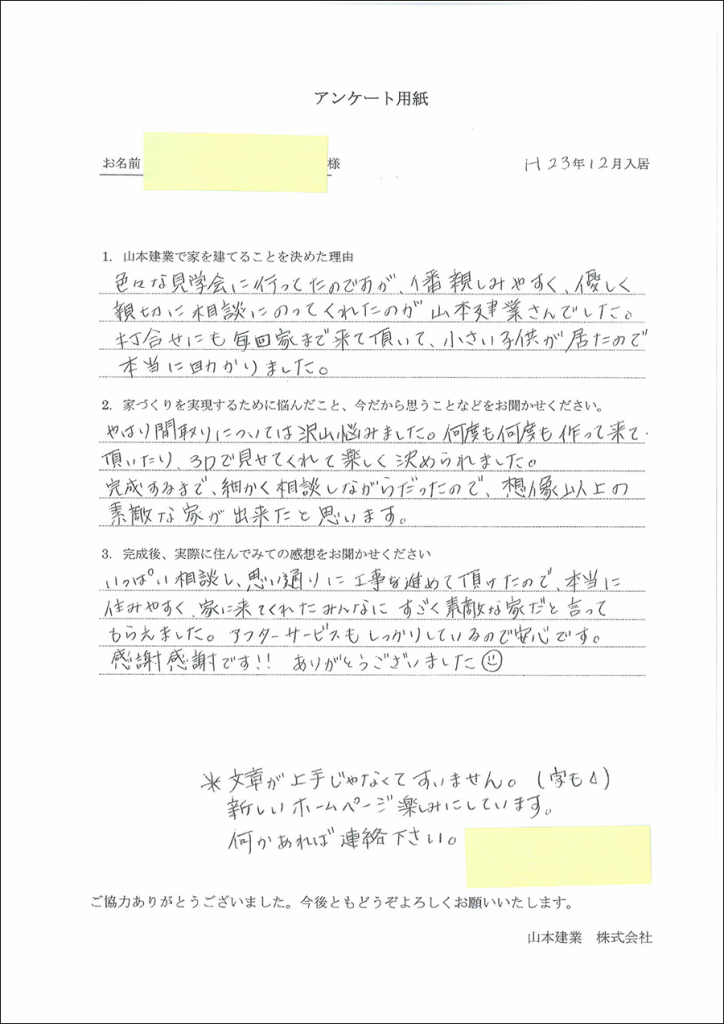 アンケート用紙
お名前 様 H23年12月入居
1. 山本建業で家を建てることを決めた理由
色々な見学会に行ってたのですが、1番親しみやすく、優しく
親切に相談にのってくれたのが山本建業さんでした。
打合せにも毎回家まで来て頂いて、小さい子供が居たので
本当に助かりました。
2. 家づくりを実現するために悩んだこと、今だから思うことなどをお聞かせください。
やはり間取りについては沢山悩みました。何度も何度も作って来て
頂いたり、3Dで見せてくれて楽しく決められました。
完成するまで、細かく相談しながらだったので、想像以上の
素敵な家が出来たと思います。
3. 完成後、実際に住んでみての感想をお聞かせください
いっぱい相談し、思い通りに工事を進めて頂けたので、本当に
住みやすく、家に来てくれたみんなにすごく素敵な家だと言って
もらえました。アフターサービスもしっかりしているので安心です。
感謝感謝です!! ありがとうございました☺
※文章が上手じゃなくてすいません。(字も△)
新しいホームページ楽しみにしています。
何かあれば連絡下さい。
ご協力ありがとうございました。今後ともどうぞよろしくお願いいたします。
山本建業 株式会社